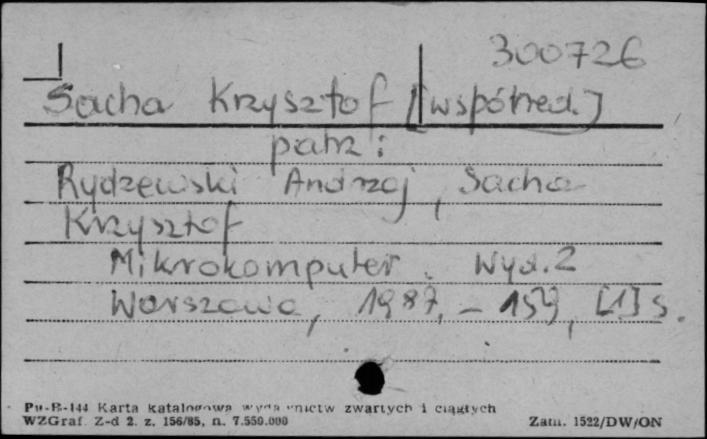 300726
Sacha Krzysztof [współred.]
patrz:
Rydzewski Andrzej, Sacha
Krzysztof
Mikrokomputer. Wyd. 2
Warszawa, 1987. - 159, [1] s.
Pu-B-144 Karta katalogowa wydawnictw zwartych i ciągłych
WZGraf. Z-d 2. z. 156/85, n. 7.550.000 Zam. 1522/DW/ON